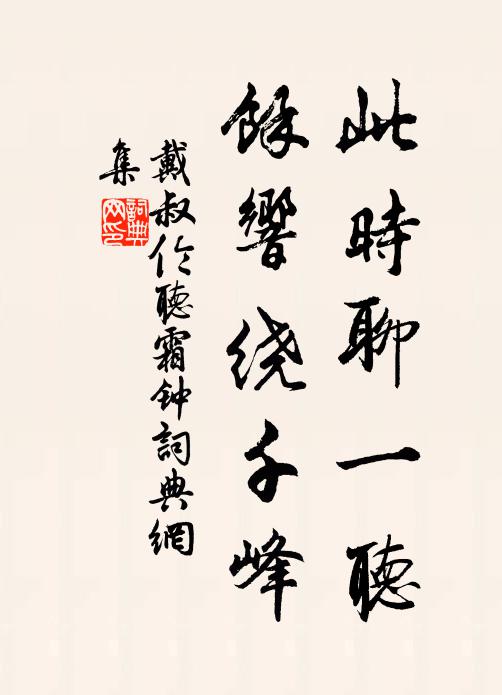 此時聊一聽
餘響绕千峰
戴叔伦聽霜钟詞典網
集
詞典網印